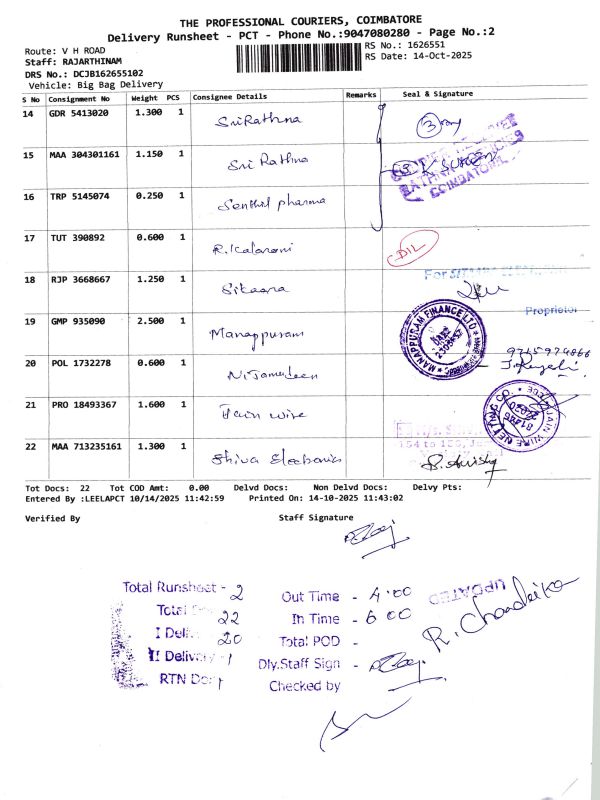 THE PROFESSIONAL COURIERS, COIMBATORE
Delivery Runsheet - PCT - Phone No.:9047080280 - Page No.:2
Route: V H ROAD RS No.: 1626551
Staff: RAJARTHINAM RS Date: 14-Oct-2025
DRS No.: DCJB162655102
Vehicle: Big Bag Delivery
S No Consignment No Weight PCS Consignee Details Remarks Seal & Signature
14 GDR 5413020 1.300 1 Sri Rathna 3
15 MAA 304301161 1.150 1 Sri Rathna
COIMBATORE
16 TRP 5145074 0.250 1 Senthil pharma
17 TUT 390892 0.600 1 R. Kalarani DIL
18 RJP 3668667 1.250 1 Sitaara
Proprietor
19 GMP 935090 2.500 1 Manappuram MANAPPURAM FINANCE LTD
9715974866
20 POL 1732278 0.600 1 Nijamudeen
21 PRO 18493367 1.600 1 Jain wire JAIN WIRE NETTING CO.
22 MAA 713235161 1.300 1 Shiva Electronics
Tot Docs: 22 Tot COD Amt: 0.00 Delvd Docs: Non Delvd Docs: Delvy Pts:
Entered By :LEELAPCT 10/14/2025 11:42:59 Printed On: 14-10-2025 11:43:02
Verified By Staff Signature
Total Runsheet - 2 Out Time - 4.00 UPDATED
Total 22 In Time - 6.00 R. Chandrika
I Deli 20 Total POD -
II Delivery 1 Dly.Staff Sign -
RTN Checked by